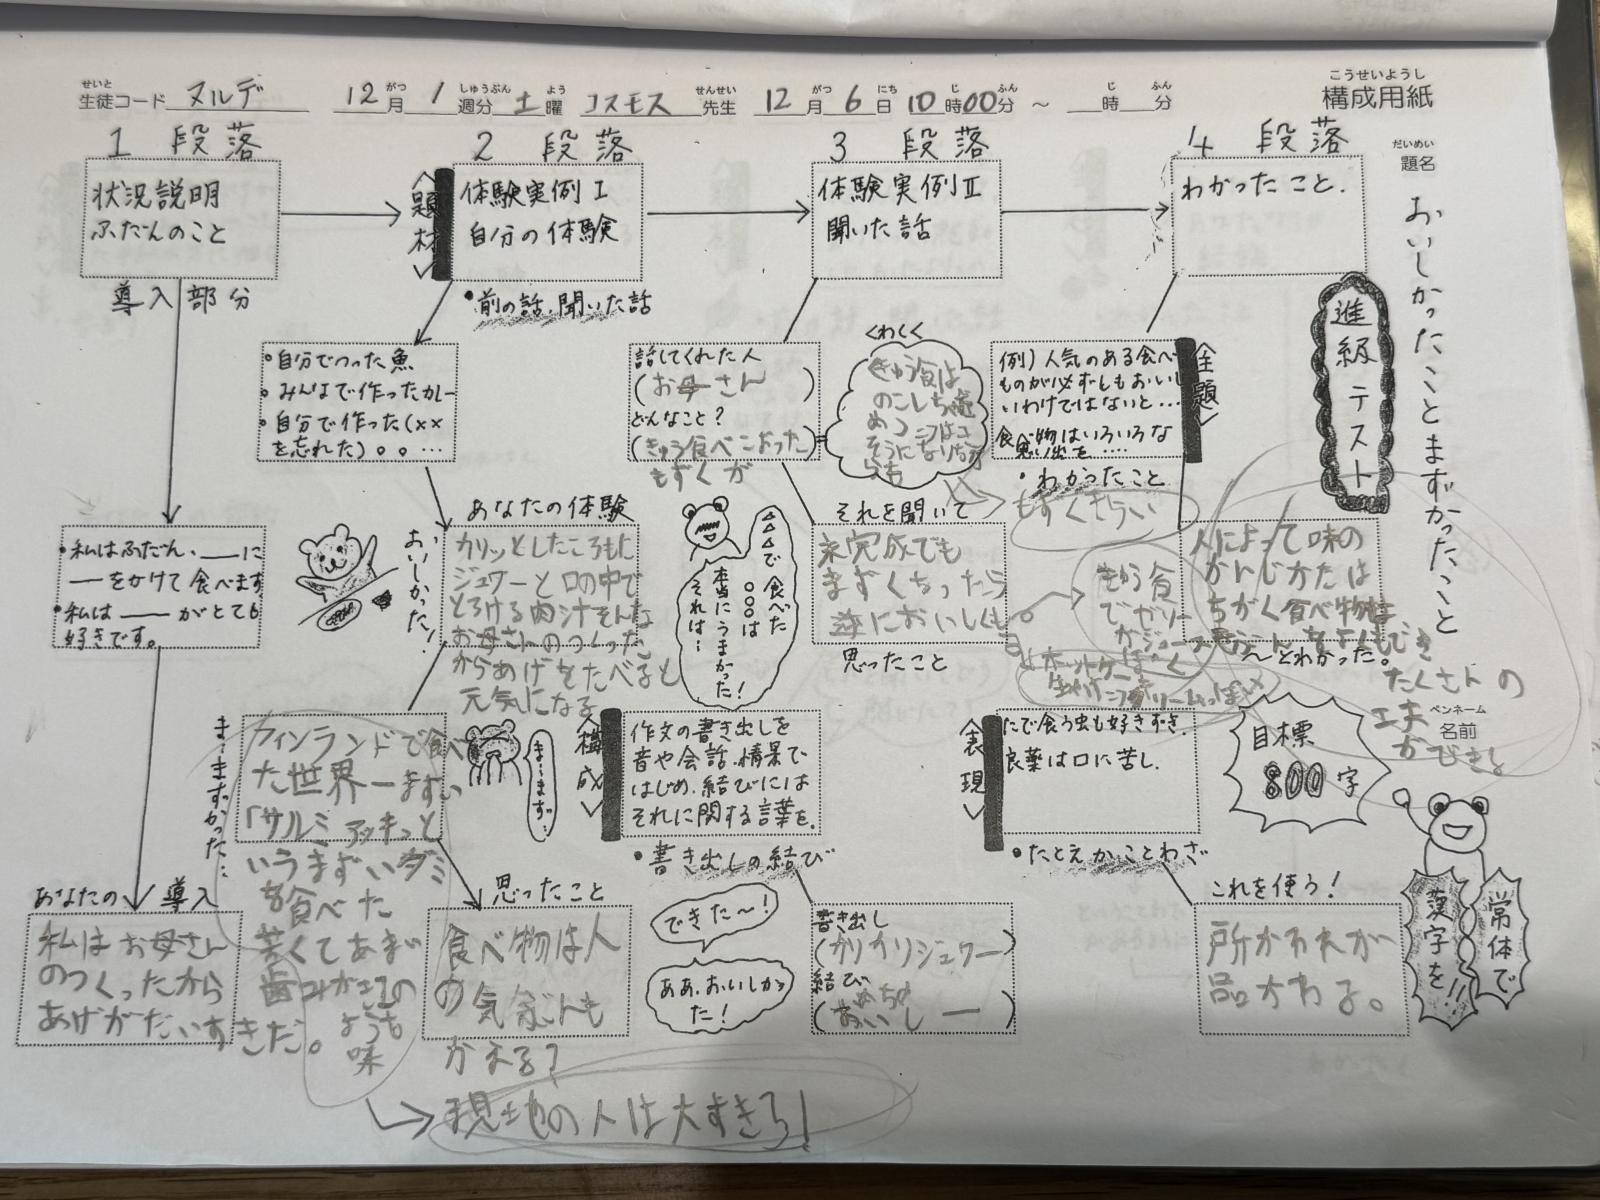 構成用紙
生徒コード ヌルデ 12月1週分 土曜 コスモス先生 12月6日10時00分 ～ 時 分
題名 おいしかったことまずかったこと
1 段落
状況説明
ふだんのこと
導入部分
・私はふだん、――に
――をかけて食べます
・私は――がとても
好きです。
あなたの導入
私はお母さん
のつくったから
あげがだいすきだ。
2 段落
〈題材〉
体験実例Ⅰ
自分の体験
・前の話、聞いた話
・自分でつった魚
・みんなで作ったカレー
・自分で作った(××
を忘れた)。。…
おいしかった!
あなたの体験
カリッとしたころもに
ジュワーと口の中で
とろける肉汁そんな
お母さんのつくった
からあげをたべると
元気になる
ま…まずかった…
フィンランドで食べ
た世界一まずい
「サルミアッキ」と
いうまずいグミ
を食べた
苦くてあまい
歯
のような
味
現地の人は大すきろ!
ま…まず…
思ったこと
食べ物は人
の気ぶんも
かえる?
3 段落
体験実例Ⅱ
聞いた話
話してくれた人
(お母さん)
どんなこと?
(きゅう食べこおった)
もずくが
くわしく
きゅう食は
△△△で食べた
○○○は
本当にうまかった!
それは…
それを聞いて
未完成でも
まずくなったら
逆においしくも
思ったこと
〈構成〉
作文の書き出しを
音や会話、情景で
はじめ、結びには
それに関する言葉を。
・書き出しの結び
できた～!
ああ、おいしかった!
書き出し
(カリカリジュワー)
結び
4 段落
わかったこと.
〈主題〉
例)人気のある食べ
ものが必ずしもおいし
いわけではないと…
食べ物はいろいろな
思い出を….
・わかったこと
もずくきらい
きゅう食
でゼリー
人によって味の
かんじかたは
ちがく食べ物は
～とわかった。
たくさんの
工夫
ができる
〈表現〉
たで食う虫も好きずき.
良薬は口に苦し.
・たとえかことわざ
これを使う!
所かわれば
品かわる。
進級テスト
ペンネーム
名前
目標
800字
常体で
漢字を!!